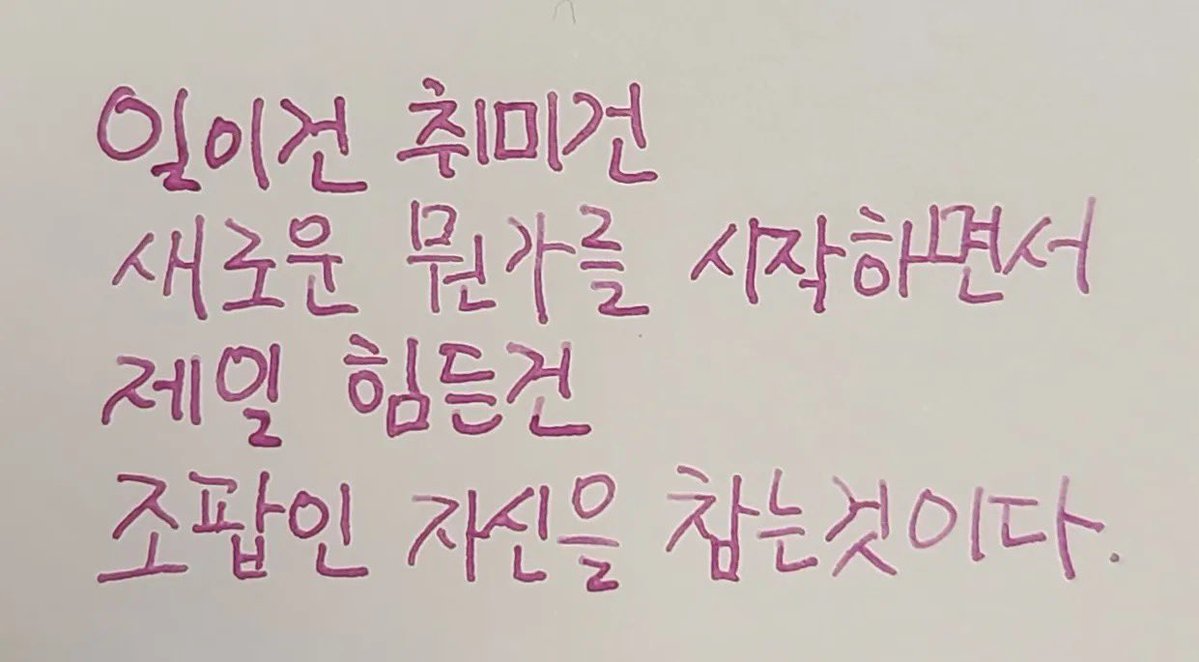 일이건 취미건
새로운 뭔가를 시작하면서
제일 힘든건
조팝인 자신을 참는것이다.